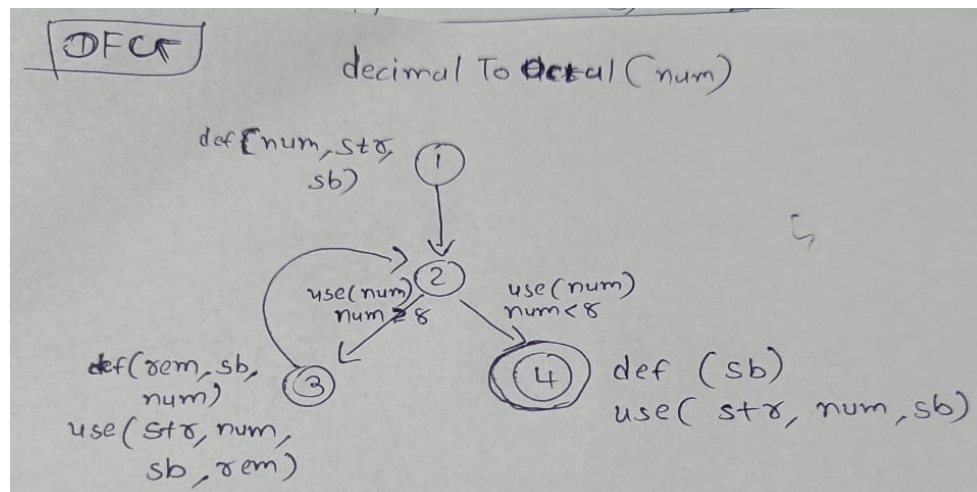 DFG
decimal To Octal (num)
def(num, str,
sb)
1
2
use(num)
num ≥ 8
use(num)
num < 8
def(rem, sb,
num)
use(str, num,
sb, rem)
3
4
def (sb)
use( str, num, sb)